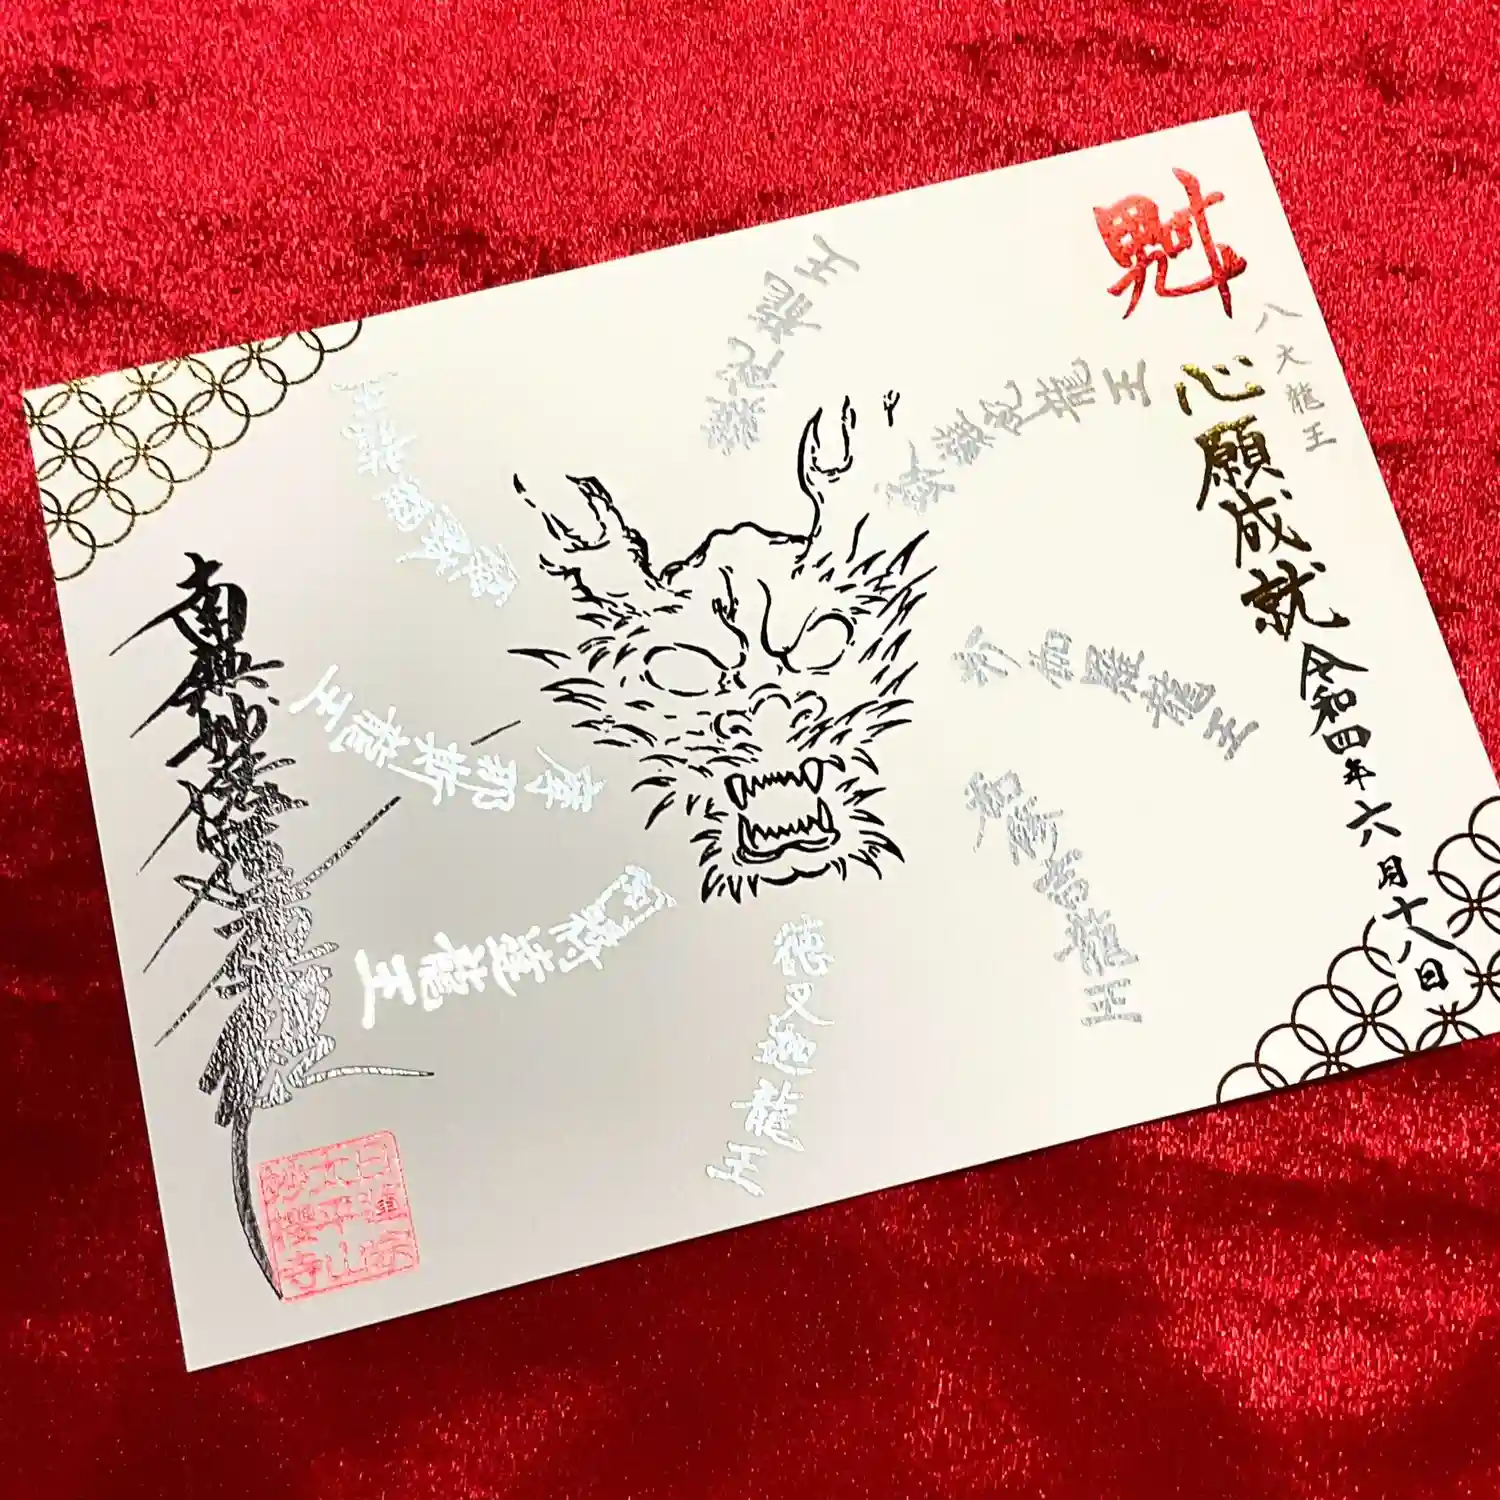 魁
八大龍王
心願成就
令和四年六月十八日
難陀龍王
跋難陀龍王
娑伽羅龍王
和修吉龍王
徳叉迦龍王
阿那婆達龍王
摩那斯龍王
優鉢羅龍王
南無妙法蓮華経
日蓮宗
太平山
妙櫻寺